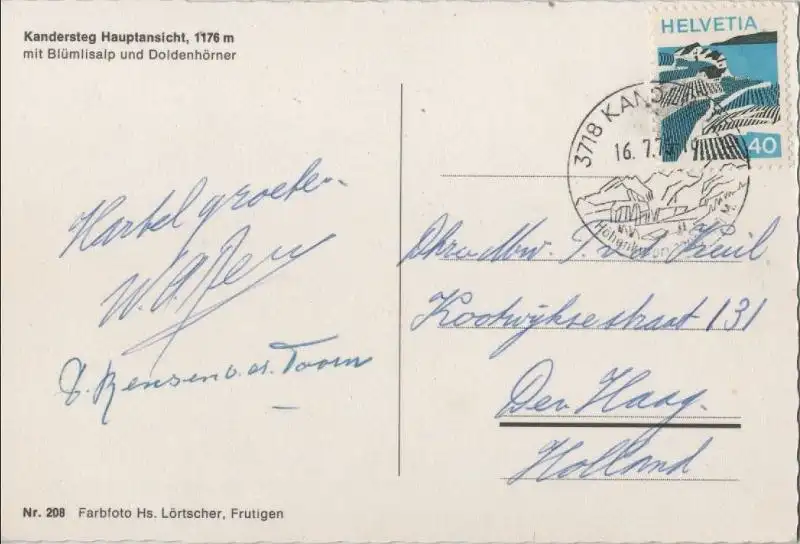 Kandersteg Hauptansicht, 1176 m
mit Blümlisalp und Doldenhörner
HELVETIA
40
3718 KAND
16. 7. 7
Höhenkurort
Hartel. groeten.
Rensen v. d. Toorn
Kootwijksestraat 131
Den Haag.
Holland
Nr. 208 Farbfoto Hs. Lörtscher, Frutigen